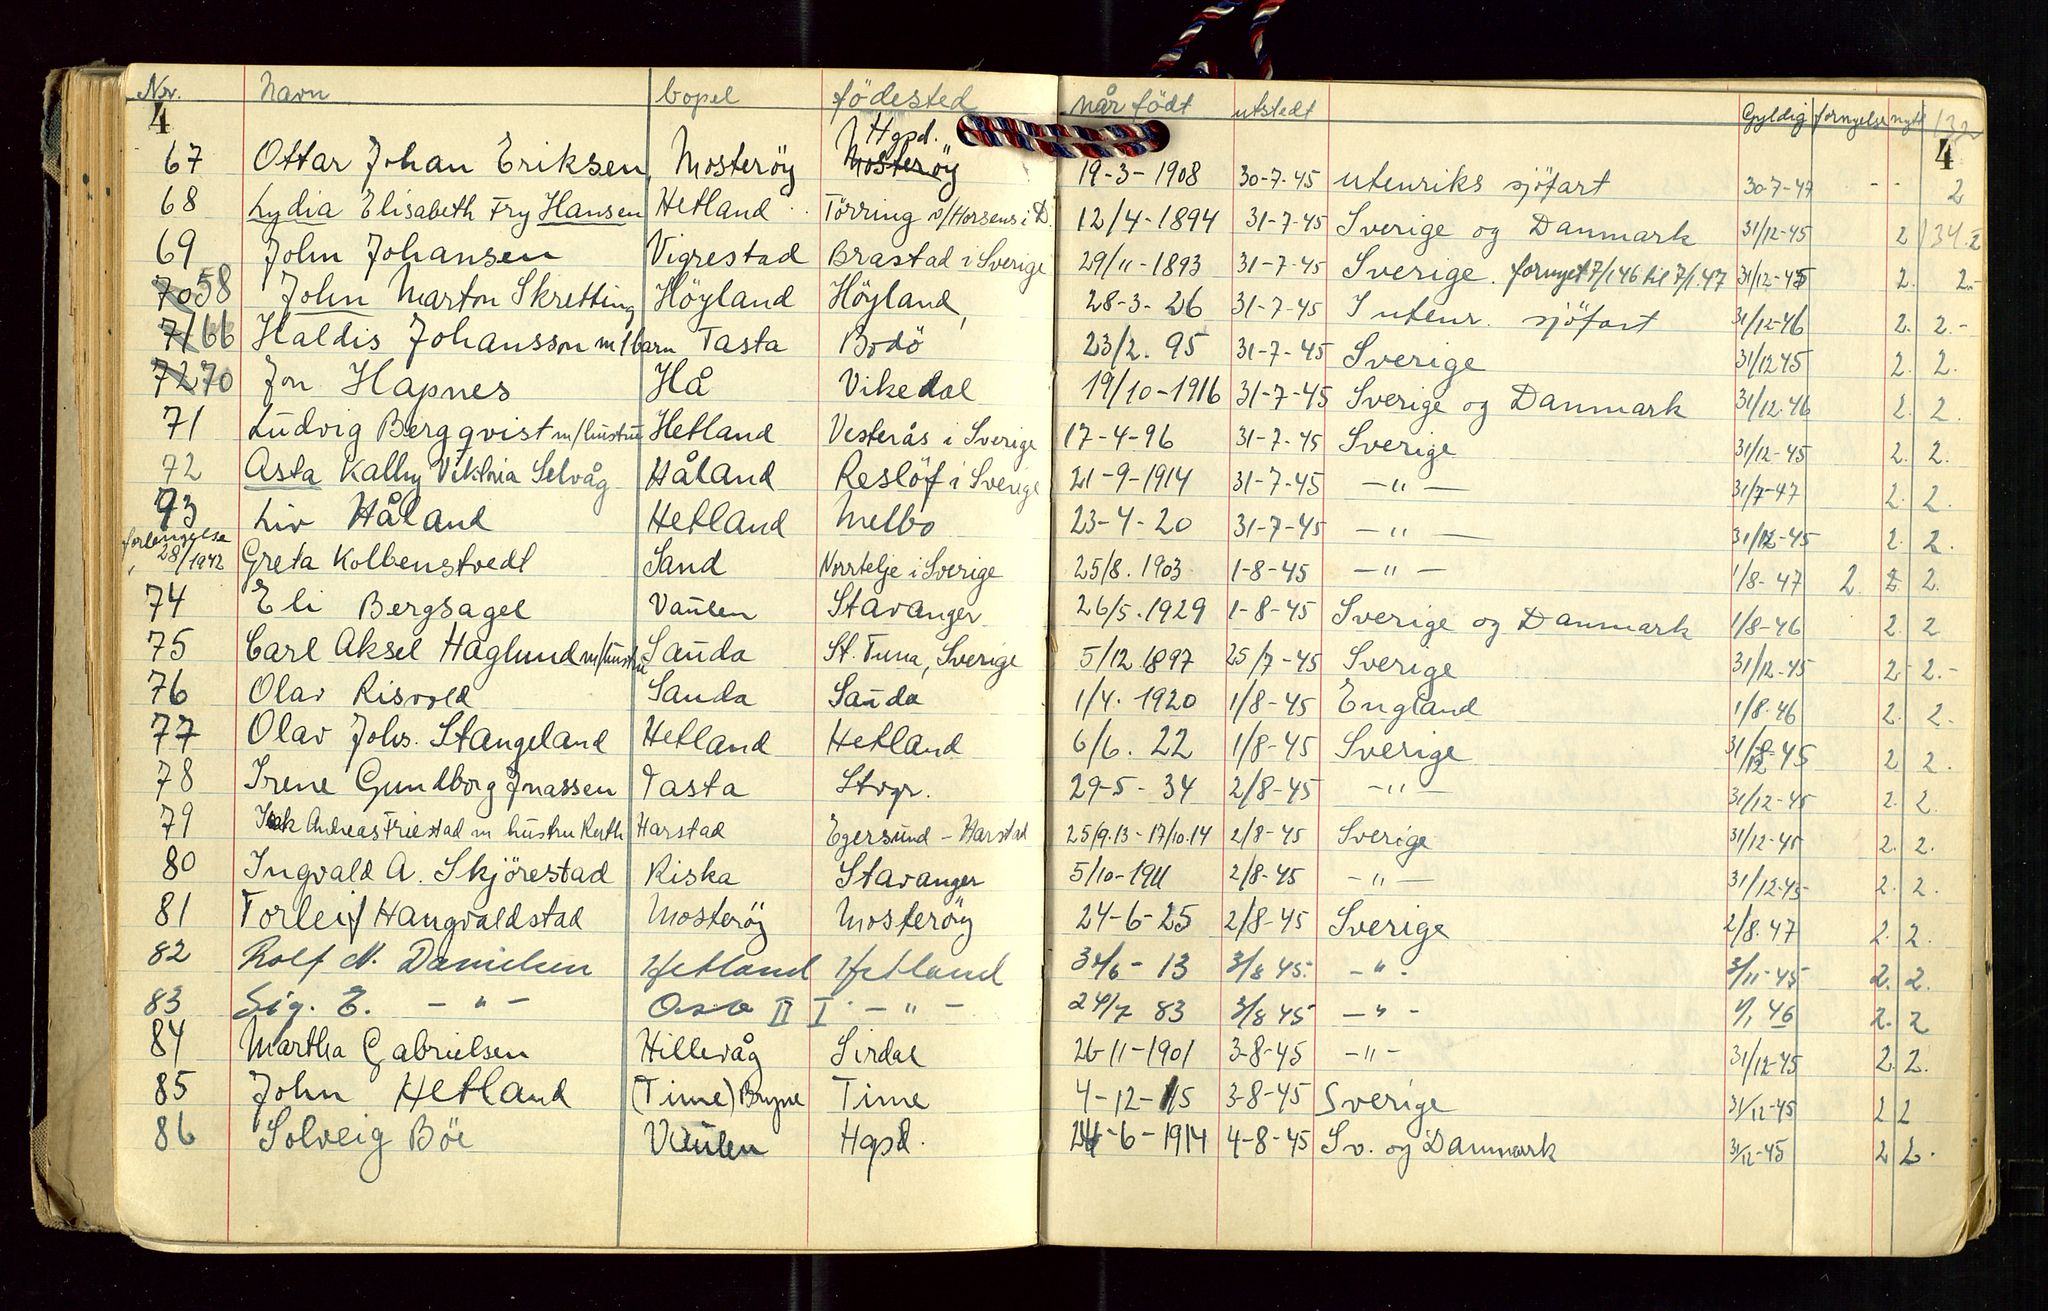 Nr. Navn bopel födested når födt utstedt Gyldig fornyelse nytt 132
4 4
Hgsd.
67 Ottar Johan Eriksen, Mosterøy Mosterøy 19-3-1908 30-7-45 utenriks sjöfart 30-7-47 - - 2
68 Lydia Elisabeth Fry Hansen Hetland Törring v/Horsens i D. 12/4-1894 31-7-45 Sverige og Danmark 31/12-45 2 134.2
69 John Johansen Vigrestad Brastad i Sverige 29/11-1893 31-7-45 Sverige. fornyet 7/1 46 til 7/1.47 31/12-45 2. 2.-
70 58 John Marton Skretting Höyland Höyland, 28-3-26 31-7-45 I utenr. sjöfart 31/12-46 2. 2.-
71 66 Haldis Johansson m/barn Tasta Bodö 23/2. 95 31-7-45 Sverige 31/12 45 2. 2.
72 70 Jon Hapnes Hå Vikedal 19/10-1916 31-7-45 Sverige og Danmark 31/12.46 2. 2.
71 Ludvig Bergqvist m/hustru Hetland Vesterås i Sverige 17-4-96 31-7-45 Sverige 31/12-45 2. 2.
72 Asta Kathy Viktoria Selvåg Håland Reslöf i Sverige 21-9-1914 31-7-45 -"- 31/7-47 2. 2.
73 Liv Håland Hetland Melbo 23-4-20 31-7-45 -"- 31/12-45 2. 2.
forlengelse
28/1942 Greta Kolbenstvedt Sand Norrtelje i Sverige 25/8.1903 1-8-45 -"- 1/8-47 2. 2 2.
74 Eli Bergsagel Vaulen Stavanger 26/5.1929 1-8-45 Sverige og Danmark 1/8-46 2. 2
75 Carl Aksel Haglund m/hustru Sauda St. Tuna, Sverige 5/12 1897 25/7-45 Sverige 31/12-45 2 2.-
76 Olav Risvold Sauda Sauda 1/4. 1920 1/8-45 England 1/8.46 2. 2.
77 Olav Johs. Stangeland Hetland Hetland 6/6. 22 1/8-45 Sverige 31/12-45 2 2.
78 Irene Gundborg Jnassen Tasta Stvgr. 29-5-34 2/8-45 -"- 31/12-45 2. 2.
79 Andreas Friestad m hustru Ruth Harstad Egersund - Harstad 25/9.13-17/10.14 2/8-45 Sverige 31/12-45 2. 2.
80 Ingvald A. Skjörestad Riska Stavanger 5/10-1911 2/8-45 -"- 31/12-45- 2. 2.
81 Torleif Hangvaldstad Mosterøy Mosterøy 24-6-25 2/8-45 Sverige 2/8.47 2. 2.
82 Rolf N. Danielsen Hetland Hetland /6-13 3/8 45 -"- 3/11-45 2. 2.
83 Sig. E. -"- II I -"- 24/7 83 3/8 45 -"- 1/1 46 2. 2
84 Martha Gabrielsen Hillevåg Sirdal 26-11-1901 3-8-45 -"- 31/12-45 2. 2.
85 John Hetland (Time) Bryne Time 4-12-15 3-8-45 Sverige 31/12-45 2 2
86 Solveig Böe Vaulen Hgsd. 24-6-1914 4-8-45 Sv. og Danmark 31/12-45 2 2.